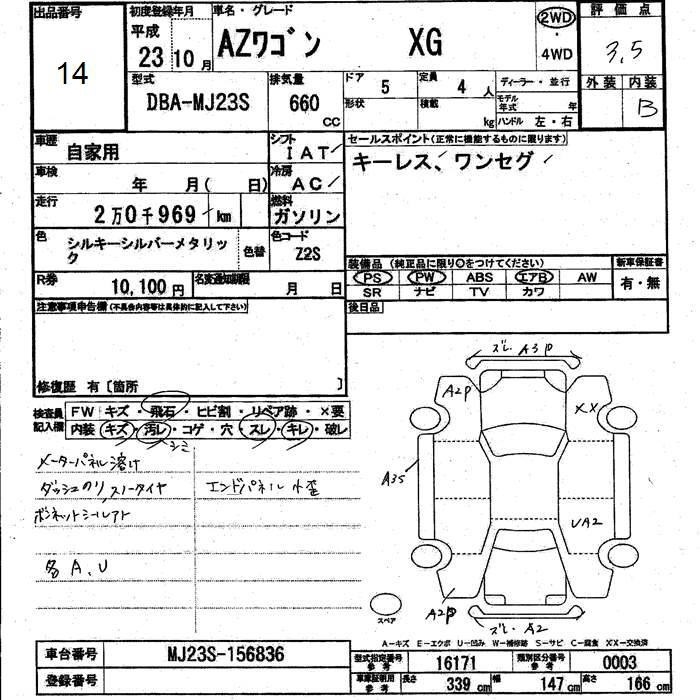 出品番号
14
初度登録年月
平成
23年 10月
車名・グレード
AZワゴン XG
2WD
・
4WD
評価点
3.5
外装 内装
B
型式
DBA-MJ23S
排気量
660
CC
ドア
5
形状
定員
4 人
積載
kg
ディーラー・並行
モデル年式 年
ハンドル 左・右
車歴
自家用
シフト
IAT
車検
年 月( 日)
冷房
AC
走行
2万0千969 km
燃料
ガソリン
色
シルキーシルバーメタリック
色替
色コード
Z2S
R券
10,100円
名変通知期限
月 日
セールスポイント(正常に機能するものに限ります)
キーレス、ワンセグ
装備品 (純正品に限り○をつけてください)
PS PW ABS エアB AW
SR ナビ TV カワ
新車保証書
有・無
後日品
注意事項申告欄 (不具合内容等は具体的に記入して下さい)
修復歴 有〔箇所 〕
検査員記入欄
FW キズ・飛石・ヒビ割・リペア跡・×要
内装 キズ・汚レ・コゲ・穴・スレ・キレ・破レ
シミ
メーターパネル溶け
ダッシュのり、スノータイヤ
エンドパネル小歪
ボンネットシールアト
多A、U
ズレ A3P
A2P
XX
A3S
UA2
A2P
ズレ A2
スペア
A-キズ E-エクボ U-凹み W-補修跡 S-サビ C-腐食 XX-交換済
車台番号
MJ23S-156836
登録番号
型式指定番号
参考
16171
類別区分番号
参考
0003
車庫証明用
参考
長さ 339 cm
幅 147 cm
高さ 166 cm